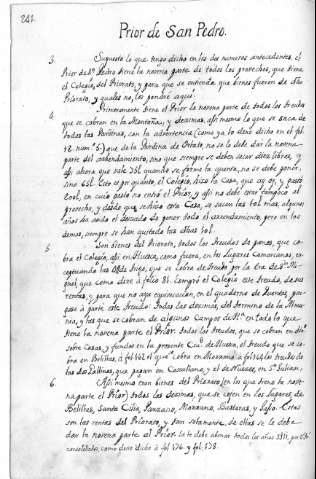 241.
Prior de San Pedro.
3. Supuesto lo que tengo dicho en los dos numeros antecedentes, el
Prior de Sn. Pedro tiene la novena parte de todos los provechos, que tiene
el Colegio, del Priorato, y para que se entienda, que bienes fueron de
Priorato, y quales no, los pondré aqui.
4. Primeramente tiene el Prior la novena parte de todos los treudos
que se cobran en la Montaña, y decimas, assi mesmo lo que se saca de
todas las con la advertencia (como ya lo dexo dicho en el fol.
num. 5.) que de la de no se le debe dar la novena
parte del arrendamiento, sino que siempre se deben sacar diez libras, y
assi ahora que vale 75l quando se forma la quenta, no se debe poner,
sino 65l. Esto es por quanto, el Colegio, hizo la Casa, que ay oy, y gastó
200l, en cuio gasto no entró el Prior, y assi no debe entrar tampoco al
provecho, y desde que se hizo esta Casa, se sacan las 10l mas, algunos
años ha avido el descuido de poner todo el arrendamiento, pero en los
demas, siempre se han quitado las dhas 10l.
5. Son bienes del Priorato, todos los treudos de panes, que co-
bra el Colegio, assi en Huesca, como fuera, en los Lugares Comarcanos, ex-
ceptuando las de trigo, que se cobra de treudo por la Era de Sn. Mi-
guel, que como dixe à folio 81. compró el Colegio este treudo, de sus
rentas, y para que no aya equivocacion, en el quaderno de
à parte este treudo. Todas las decimas, del termino de la
nia, y las que se cobran de algunos Campos de en todo lo que
tiene la novena parte el Prior. Todos los treudos, que se cobran en
sobre Casas, y fundos en la presente Ciud. de Huesca, el treudo que se co-
bra en Bolihas, à fol. 162. el que cobra en à fol. 164, los treudos de
las dos que pagan en Castellana, y el de Nuevas, en Sn. Julian.
6. Assi mesmo eran bienes del Priorato (en los que tiene la nove-
na parte el Prior) todas las decimas, que se cojen en los Lugares de
Belihes, Santa Cilia, Panzano, y Estas
son las rentas del Priorato, y son solamente, de ellas se le debe
dar la novena parte al Prior. Se le debe abonar todos los años
como dexo dicho à fol. 176. y fol. 178.